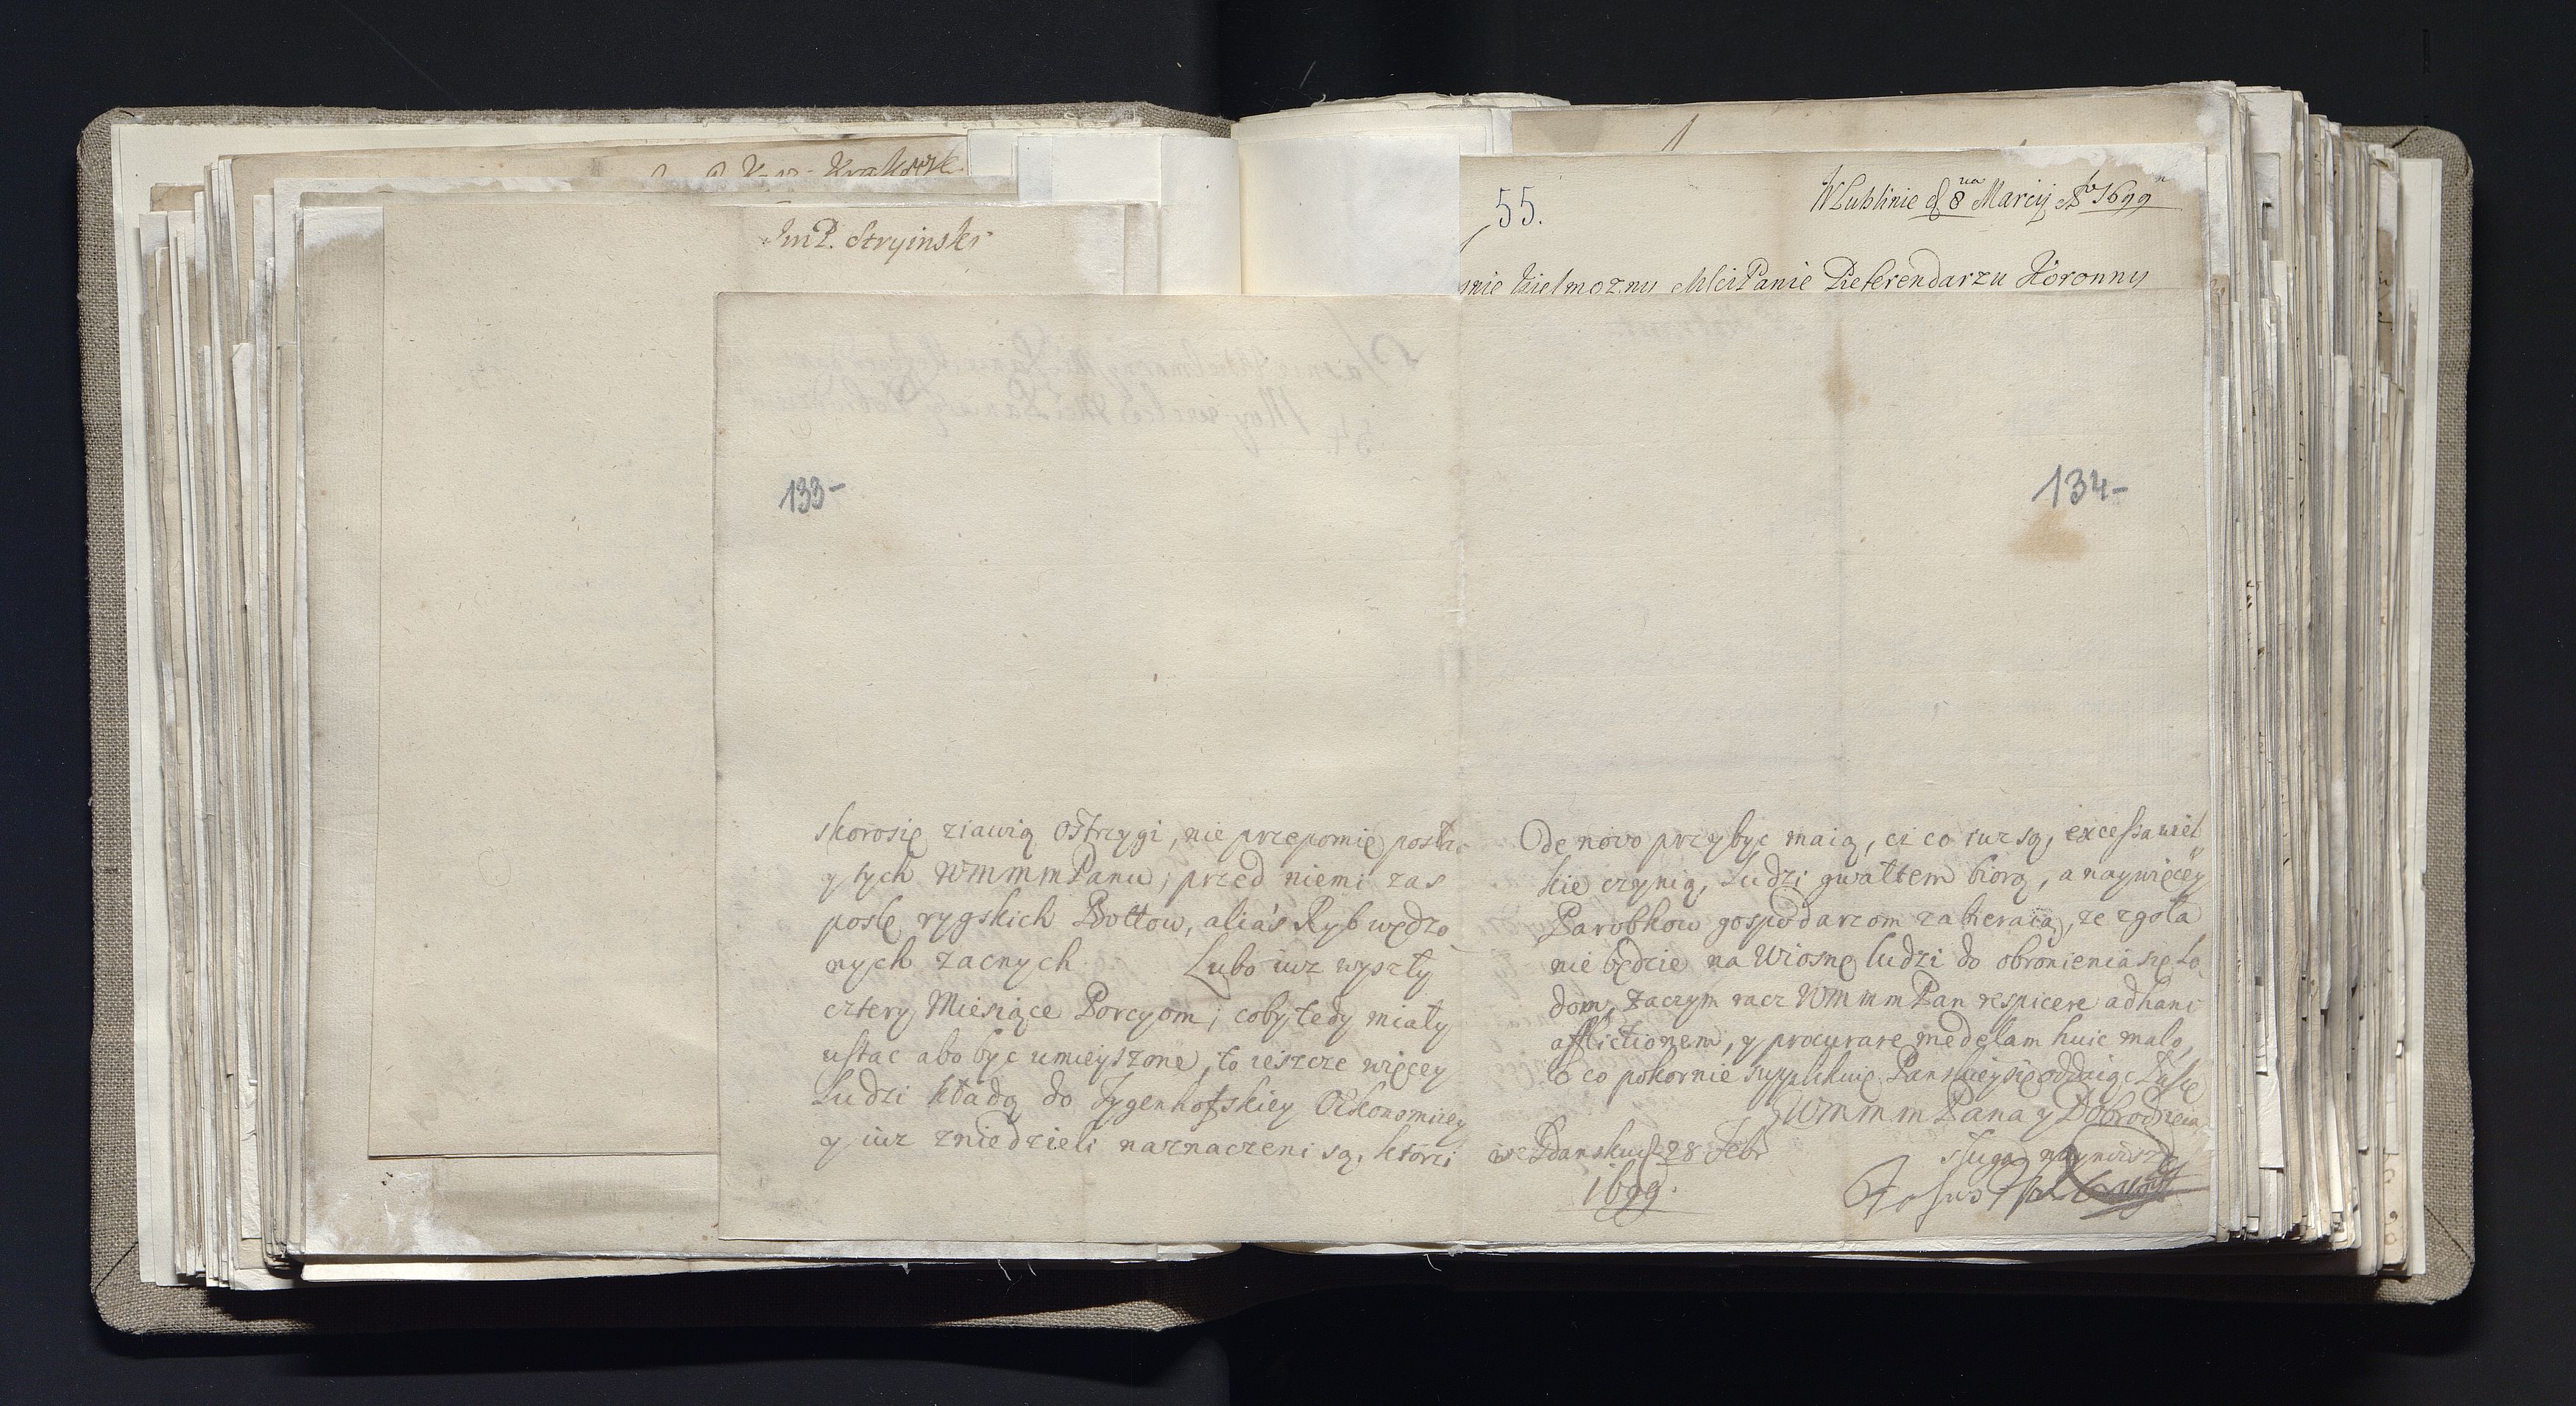 Krakowsk
Im P. Stryinski
55.
W Lublinie d 8 va Marcij Ao 1699
snie Wielmozny Mści Panie Referendarzu Koronny
133-
134-
skorosię ziawią Ostrzygi, nie przepomię posłac
y tych WMMMPanu; przed niemi zas
poslę rygskich Bottow, aliàs Ryb wędzo
nych zacnych Lubo iuz wyszły
cztery Miesiące Porcyom; coby tedy miały
ustac abo byc umieyszone, to ieszcze więcey
Ludzi kładą do Tygenhofskiey Oekonomiey
y iuz znie dzieli naznaczeni są, ktorzi
De novo przybyc maią, ci co iuz są, excessa wiel
kie czynią, Ludzi gwałtem biorą, a naywięcey
Parobkow gospodarzom zabieraią, ze zgoła
nie będzie na Wiosnę ludzi do obronienia się Lo
dom, Zaczym racz WMMM Pan respicere ad hanc
afflictionem, y procurare medelam huic malo,
o co pokornie supplikuię Panskiey się oddaiąc Łasce
WMMM Pana y Dobrodzieia
we Gdansku d 28 Febr
1699.
sługa naynizszy